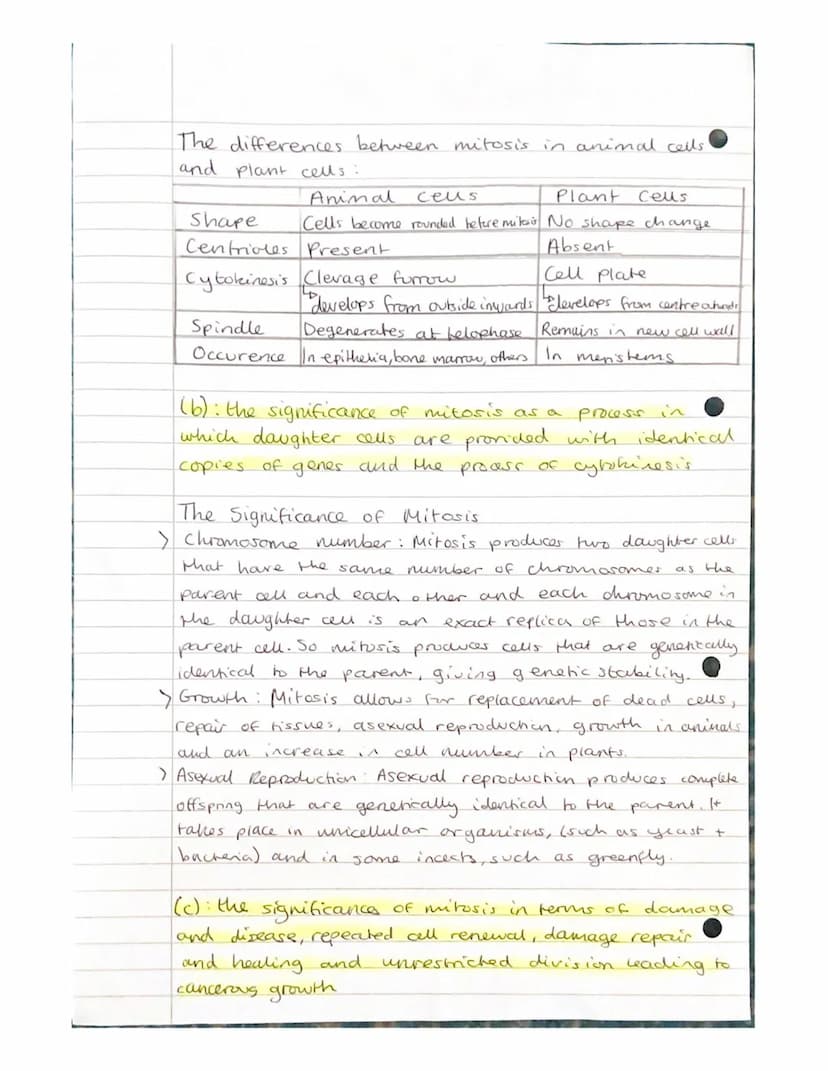 The differences between mitosis in animal cells
and plant cells:
Animal cells Plant Cells
Shape Cells become rounded before mitosis No shape change
Centrioles Present Absent
Cytokinesis Clevage furrow Cell plate
↳ develops from outside inwards ↳ develops from centre outwards
Spindle Degenerates at telophase Remains in new cell wall
Occurence In epithelia, bone marrow, others In meristems
(b): the significance of mitosis as a process in
which daughter cells are provided with identical
copies of genes and the process of cytokinesis
The Significance of Mitosis
> Chromosome number: Mitosis produces two daughter cells
that have the same number of chromosomes as the
parent cell and each other and each chromosome in
the daughter cell is an exact replica of those in the
parent cell. So mitosis produces cells that are genetically
identical to the parent, giving genetic stability.
> Growth: Mitosis allows for replacement of dead cells,
repair of tissues, asexual reproduction, growth in animals
and an increase in cell number in plants.
> Asexual Reproduction: Asexual reproduction produces complete
offspring that are genetically identical to the parent. It
takes place in unicellular organisms, (such as yeast +
bacteria) and in some incects, such as greenfly.
(c): the significance of mitosis in terms of damage
and disease, repeated cell renewal, damage repair
and healing and unrestricted division leading to
cancerous growth